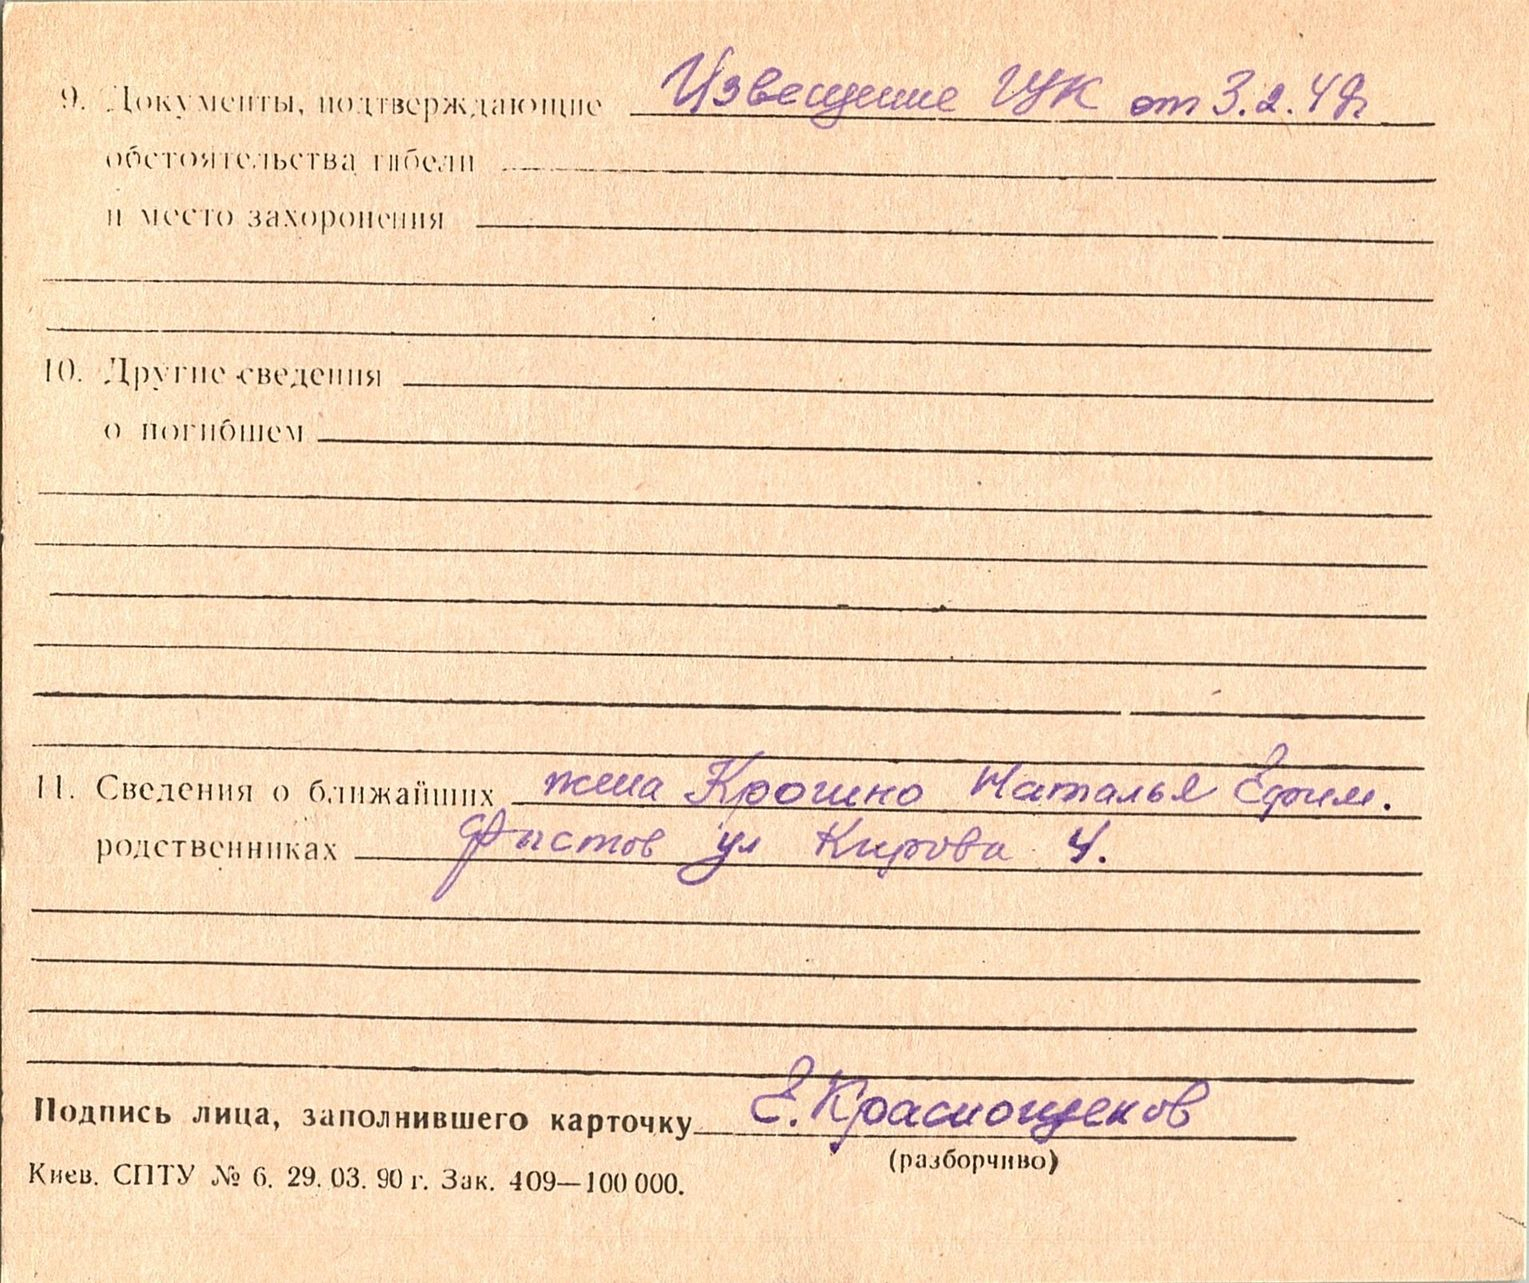 9. Документы, подтверждающие Извещение ГУК от 3.2.48г
обстоятельства гибели
и место захоронения
10. Другие сведения
о погибшем
11. Сведения о ближайших жена Крошно Наталья Ефим.
родственниках Фастов ул Кирова 4.
Подпись лица, заполнившего карточку Е. Краснощеков
(разборчиво)
Киев. СПТУ № 6. 29. 03. 90 г. Зак. 409—100 000.